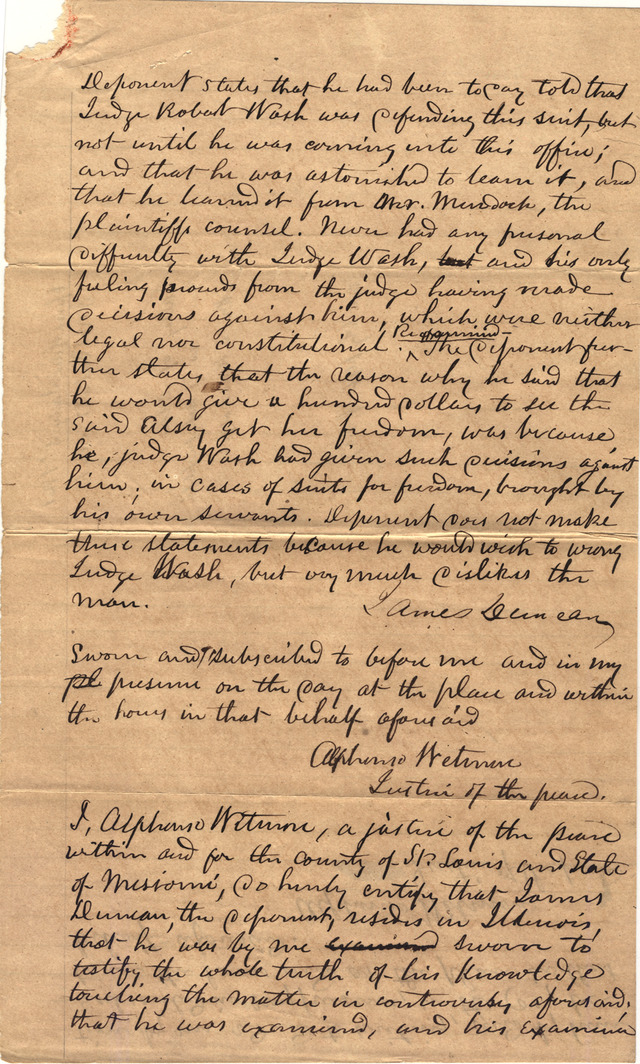 Deponent states that he had been to day told that
Judge Robert Wash was defending this suit, but
not until he was coming into this office;
and that he was astonished to learn it, and
that he learnd it from Mr. Murdock, the
plaintiffs counsel. Never had any personal
difficulty with Judge Wash, but and his only
feeling proceeds from the judge having made
decisions against him, which were neither
legal nor constitutional. Reexamined The deponent fur-
ther states that the reason why he said that
he would give a hundred dollars to see the
said Alsey get her freedom, was because
he, judge Wash had given such decisions against
him, in cases of suits for freedom, brought by
his own servants. Deponent does not make
these statements because he would wish to wrong
Judge Wash, but very much dislikes the
man.
James Duncan
Sworn and subscribed to before me and in my
pl presence on the day at the place and within
the hours in that behalf aforesaid
Alphonso Wetmore
Justice of the peace.
I, Alphonso Wetmore, a justice of the peace
within and for the county of St. Louis and State
of Missouri, do hereby certify that James
Duncan, the deponent, resides in Illinois,
that he was by me examined sworn to
testify the whole truth of his knowledge
touching the matter in controversy aforesaid.
that he was examined, and his examina